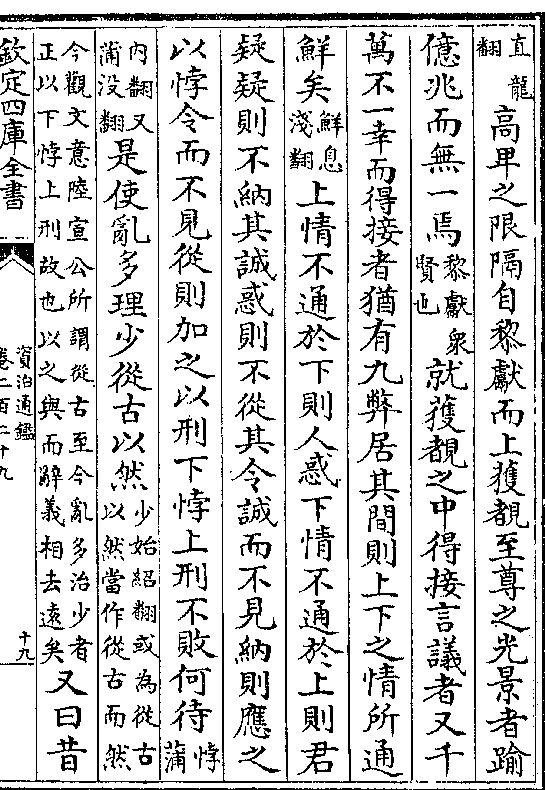 直龍翻高卑之限隔自黎獻而上獲覩至尊之光景者踰
億兆而無一焉黎獻衆賢也就獲覩之中得接言議者又千
萬不一幸而得接者猶有九弊居其間則上下之情所通
鮮矣鮮息淺翻上情不通於下則人惑下情不通於上則君
疑疑則不納其誠惑則不從其令誠而不見納則應之
以悖令而不見從則加之以刑下悖上刑不敗何待悖蒲
内翻又蒲没翻是使亂多理少從古以然少始紹翻或為從古以然當作從古而然
今觀文意陸宣公所謂從古至今亂多治少者正以下悖上刑故也以之與而辭義相去遠矣又曰昔
欽定四庫全書
資治通鑑
卷二百二十九
十九